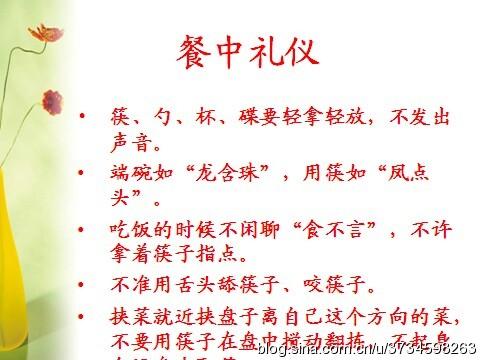 餐中礼仪
• 筷、勺、杯、碟要轻拿轻放，不发出
声音。
• 端碗如“龙含珠”，用筷如“凤点
头”。
• 吃饭的时候不闲聊“食不言”，不许
拿着筷子指点。
• 不准用舌头舔筷子、咬筷子。
• 挟菜就近挟盘子离自己这个方向的菜，
不要用筷子在盘中搅动翻拣，不起身
blog.sina.com.cn/u/3734598263